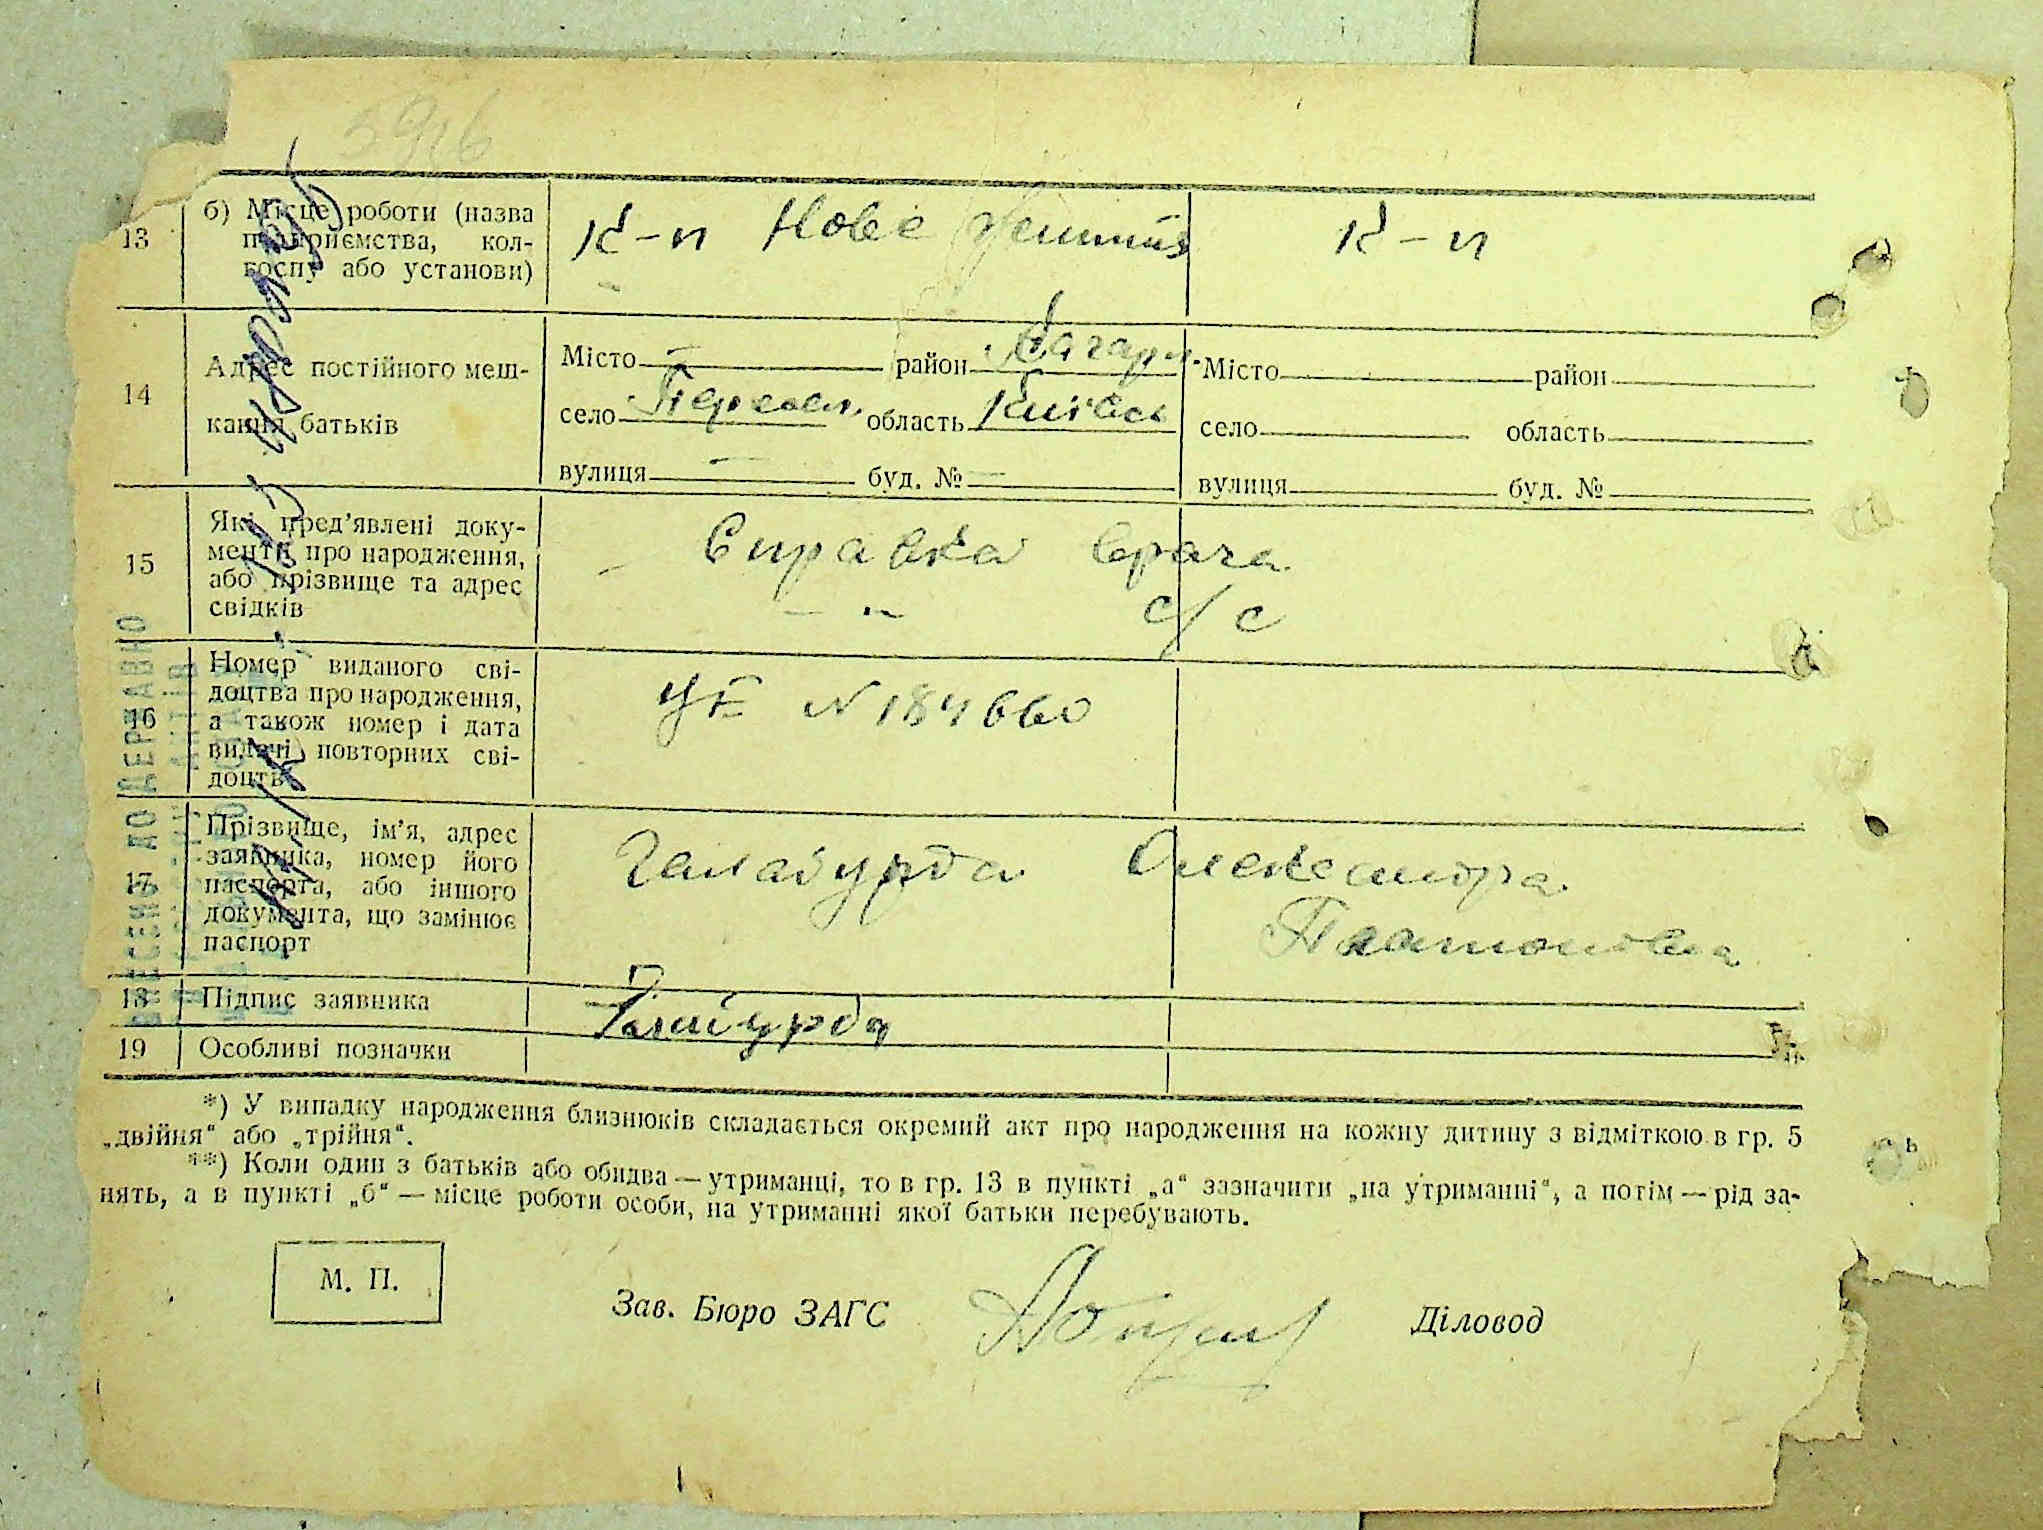 13
б) Місце роботи (назва
підприємства, кол-
госпу або установи)
К-п Нове Життя
К-п
14
Адрес постійного меш-
кання батьків
Місто — район
село область Київськ
вулиця — буд. № —
Місто район
село область
вулиця буд. №
15
Які пред’явлені доку-
менти про народження,
або прізвище та адрес
свідків
Справка врача
— „ с/с
16
Номер виданого сві-
доцтва про народження,
а також номер і дата
видачі повторних сві-
доцтв
N 184660
17
Прізвище, ім’я, адрес
заявника, номер його
паспорта, або іншого
документа, що замінює
паспорт
Галабурда Олександра
Платоновна
18
Підпис заявника
19
Особливі позначки
*) У випадку народження близнюків складається окремий акт про народження на кожну дитину з відміткою в гр. 5
„двійня“ або „трійня“.
**) Коли один з батьків або обидва — утриманці, то в гр. 13 в пункті „а“ зазначити „на утриманні“, а потім — рід за-
нять, а в пункті „б“ — місце роботи особи, на утриманні якої батьки перебувають.
М. П.
Зав. Бюро ЗАГС
Діловод